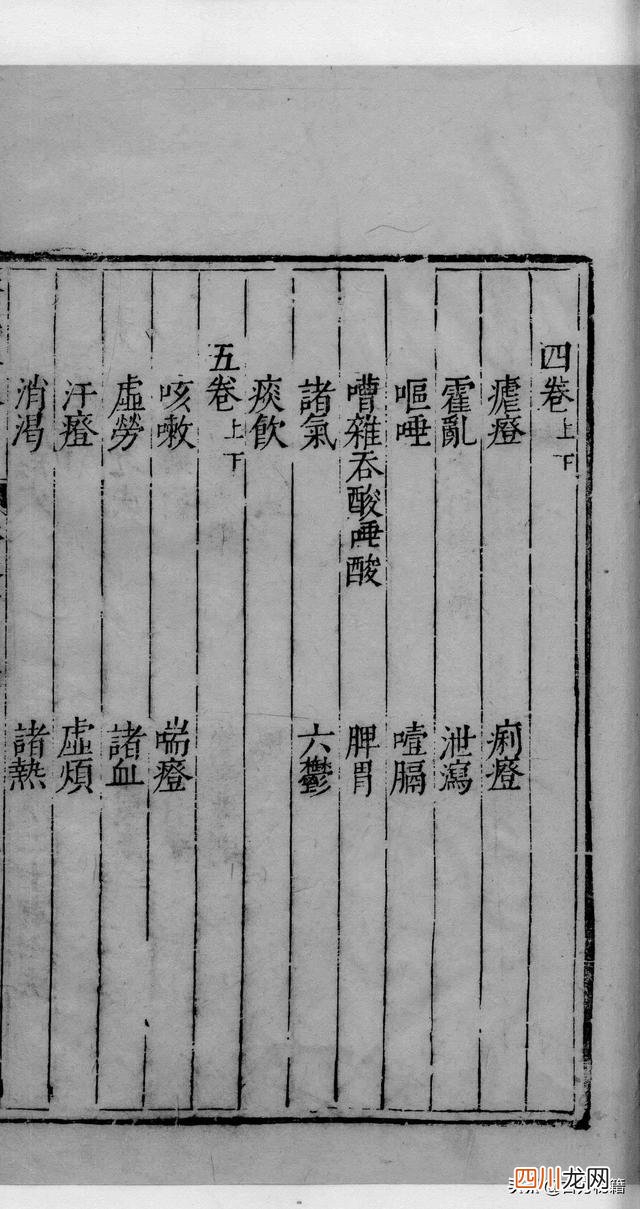 四卷上下
瘧證 痢證
霍亂 泄瀉
嘔唾 噎膈
嘈雜吞酸唾酸 脾胃
諸氣 六鬱
痰飲
五卷上下
咳嗽 喘證
虛勞 諸血
汗證 虛煩
消渴 諸熱
四川龙网